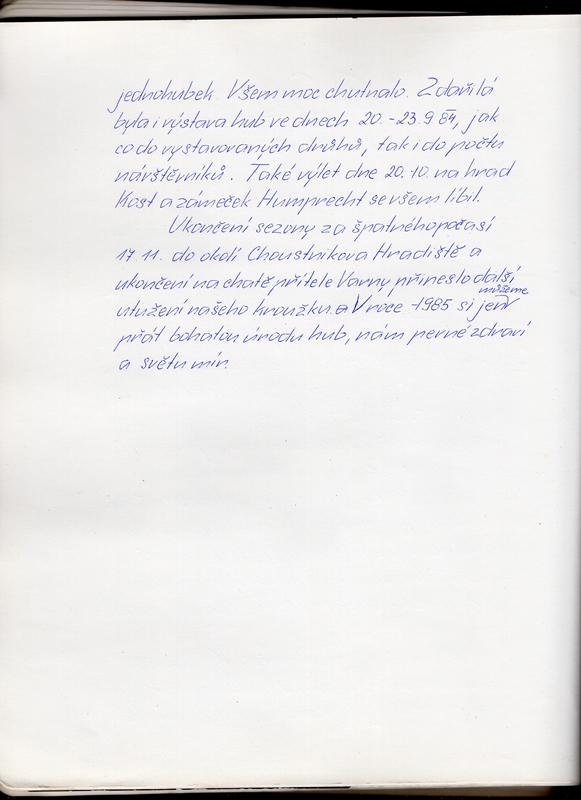 jednohubek. Všem moc chutnalo. Zdařilá
byla i výstava hub ve dnech 20.-23.9 84, jak
co do vystavovaných druhů, tak i do počtu
návštěvníků. Také výlet dne 20.10. na hrad
Kost a zámeček Humprecht se všem líbil.
Ukončení sezony za špatného počasí
17.11. do okolí Choustnikova Hradiště a
ukončení na chatě přítele Varny přineslo další
utužení našeho kroužku. a V roce 1985 si jen můžeme
přát bohatou úrodu hub, nám pevné zdraví
a světu mír.